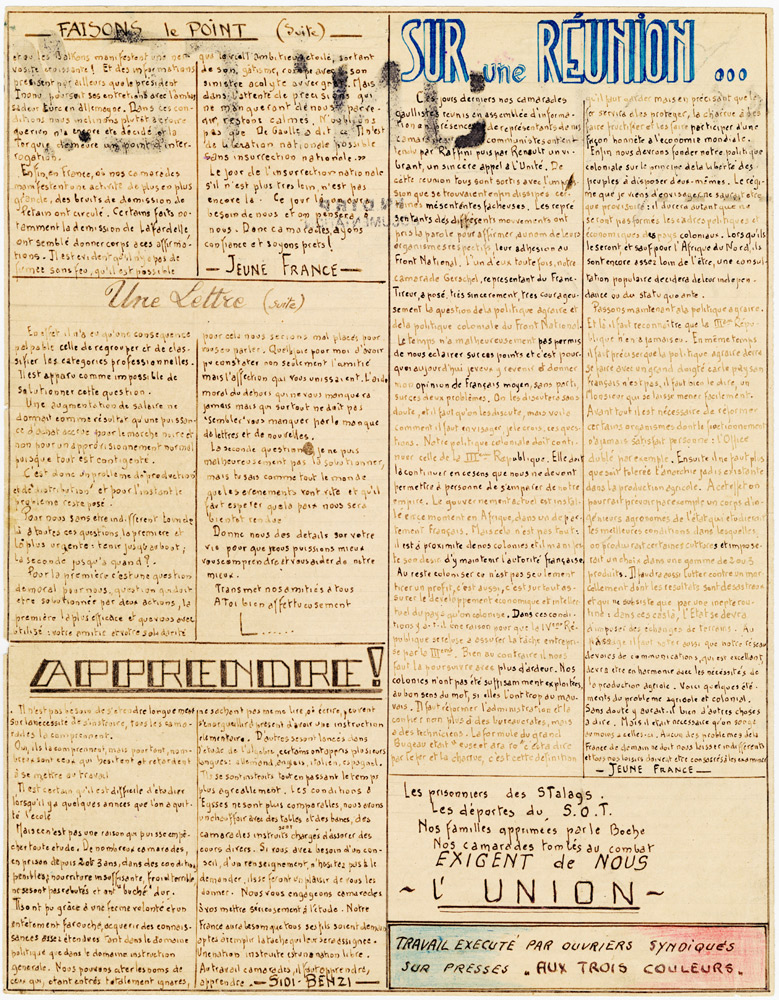 FAISONS le POINT (Suite)
et où les Balkans manifestent une ner-
vosité croissante ! Et des informations
précisent par ailleurs que le président
Inonu poursuit ses entretiens avec l'ambas-
sadeur turc en allemagne. Dans ces con-
ditions nous inclinons plutôt à croire
que rien n'a encore été décidé et la
Turquie demeure un point d'inter-
rogation.
Enfin, en France, où nos camarades
manifestent une activité de plus en plus
grande, des bruits de démission de
Pétain ont circulé. Certains faits no-
tamment la demission de Lafardelle,
ont semblé donner corps à ces affirma-
tions. Il est évident qu'il n'y a pas de
fumée sans feu, qu'il est possible
que le vieil ambitieux étoilé, sortant
de son gâtisme, rompe avec son
sinistre acolyte auvergnat. Mais
dans l'attente de précisions qui
ne manqueront de nous parve-
nir, restons calmes. N'oublions
pas que De Gaulle a dit : "Il n'est
de libération nationale possible
sans insurrection nationale."
Le jour de l'insurrection nationale
s'il n'est plus très loin, n'est pas
encore là. Ce jour là on
besoin de nous et on pensera à
nous. Donc camarades, ayons
confiance et soyons prêts !
— JEUNE FRANCE —
Une Lettre (suite)
En effet il n'a eu qu'une conséquence
palpable celle de regrouper et de clas-
sifier les catégories professionnelles.
Il est apparu comme impossible de
solutionner cette question.
Une augmentation de salaire ne
donnait comme résultat qu'une puissan-
ce d'achat accrue pour le marché noir et
non pour un approvisionnement normal
puisque tout est contingenté.
C'est donc un problème de "production
et de distribution" et pour l'instant le
problème reste posé.
Pour nous sans être indifférent loin de
là à toutes ces questions, la première et
la plus urgente : tenir jusqu'au bout ;
la seconde jusqu'à quand ?
Pour la première c'est une question
de moral pour nous, question qui doit
être solutionnée par deux actions, la
première la plus efficace et que vous avez
utilisé : votre amitié et votre solidarité
pour cela nous serions mal placés pour
vous en parler. Quelle joie pour moi d'avoir
pu constater non seulement l'amitié
mais l'affection qui vous unissaient. L'aide
moral du dehors qui ne vous manquera
jamais mais qui surtout ne doit pas
"sembler" vous manquer par le manque
de lettres et de nouvelles.
La seconde question je ne puis
malheureusement pas la solutionner,
mais tu sais comme tout le monde
que les évènements vont vite et qu'il
faut espérer que la paix nous sera
bientôt rendue
Donne nous des détails sur votre
vie pour que nous puissions mieux
vous comprendre et vous aider du notre
mieux.
Transmet nos amitiés à tous
A Toi bien affectueusement
L......
APPRENDRE !
Il n'est pas besoin de s'étendre longuement
sur la nécessité de s'instruire, tous les cama-
rades la comprennent.
Oui, ils la comprennent, mais pourtant, nom-
breux sont ceux qui hésitent et retardent
à se mettre au travail
Il est certain qu'il est difficile d'étudier
lorsqu'il y a quelques années que l'on a quit-
té l'école
Mais ce n'est pas une raison qui puisse empê-
cher toute étude. De nombreux camarades,
en prison depuis 2 ou 3 ans, dans des conditions
pénibles ; nourriture insuffisante, froid terrible
ne se sont pas rebutés et ont "buché" dur.
Ils ont pu grâce à une ferme volonté et un
entêtement farouche, acquérir des connais-
sances assez étendues tant dans le domaine
politique que dans le domaine instruction
générale. Nous pouvons citer les noms de
ceux qui, étant entrés totalement ignares,
ne sachant pas même lire, et écrire, peuvent
s'enorgueillir à présent d'avoir une instruction
élémentaire. D'autres se sont lancés dans
l'étude de l'algèbre, certains ont appris plusieurs
langues : allemand, anglais, italien, espagnol.
Ils se sont instruits tout en passant le temps
plus agréablement. Les conditions à
Eysses ne sont plus comparables, nous avons
un chauffoir avec des tables et des bancs, des
camarades instruits sont chargés d'assurer des
cours divers. Si vous avez besoin d'un con-
seil, d'un renseignement, n'hésitez pas à le
demander, ils se feront un plaisir de vous les
donner. Nous vous engageons camarades
à vous mettre sérieusement à l'étude. Notre
France aura besoin que tous ses fils soient demain
aptes à remplir la tache qui leur sera assignée.
Une nation instruite est une nation libre.
Au travail camarades, il faut apprendre,
apprendre. — SIDI-BENZI —
SUR une RÉUNION ...
Ces jours derniers nos camarades
gaullistes réunis en assemblée d'informa-
tion en présence de représentants de nos
camarades communistes ont en-
tendu par Raffini puis par Renault un vi-
brant, un sincère appel à l'Unité. De
cette réunion tous sont sortis avec l'impres-
sion que se trouvaient enfin dissipés cer-
tains mésententes facheuses. Les repré-
sentants des différents mouvements ont
pris la parole pour affirmer au nom de leurs
organismes respectifs, leur adhésion au
Front National. L'un d'eux toutefois, notre
camarade Gerschel, représentant du Franc.
Tireur, a posé, très sincèrement, très courageu-
sement la question de la politique agraire et
de la politique coloniale du Front National.
Le temps n'a malheureusement pas permis
de nous éclairer sur ces points et c'est pour-
quoi aujourd'hui je veux y revenir et donner
mon opinion de Français moyen, sans parti,
sur ces deux problèmes. On les discutera sans
doute, et il faut qu'on les discute, mais voilà
comment il faut envisager, je le crois, ces ques-
tions. Notre politique coloniale doit conti-
nuer celle de la IIIème République. Elle doit
la continuer en ce sens que nous ne devons
permettre à personne de s'emparer de notre
empire. Le gouvernement actuel est instal-
lé en ce moment en Afrique, dans un dépar-
tement Français. Mais cela n'est pas tout :
il est à proximité de nos colonies et il manifes-
te son désir d'y maintenir l'autorité française.
Au reste coloniser ce n'est pas seulement
tirer un profit, c'est aussi, c'est surtout as-
surer le développement économique et intellec-
tuel du pays qu'on colonise. Dans ces condi-
tions y a-t-il une raison pour que la IVème Ré-
publique se refuse à assurer la tâche entrepri-
se par la IIIème. Bien au contraire il nous
faut la poursuivre avec plus d'ardeur. Nos
colonies n'ont pas été suffisamment exploitées,
au bon sens du mot, si elles l'ont trop au mau-
vais. Il faut réformer l'administration et la
confier non plus à des bureaucrates, mais
à des techniciens. La formule du grand
Bugeaud était "ense et aratro" c'est à dire
par le fer et la charrue, c'est cette définition
qu'il faut garder mais en précisant que le
fer servira à les protéger, la charrue à les
faire fructifier et les faire participer d'une
façon honnête à l'économie mondiale.
Enfin nous devrons fonder notre politique
coloniale sur le principe de la liberté des
peuples à disposer d'eux-mêmes. Le régi-
me que je viens d'envisager ne saurait être
que provisoire : il durera autant que ne
seront pas formés les cadres politiques et
économiques des pays coloniaux. Lorsqu'ils
le seront et sauf pour l'Afrique du Nord, ils
sont encore assez loin de l'être, une consul-
tation populaire decidera de leur indépen-
dance ou du statu quo ante.
Passons maintenant à la politique agraire.
Et là il faut reconnaître que la IIIème Répu-
blique n'en a jamais eu. En même temps
il faut préciser que la politique agraire devra
se faire avec un grand doigté car le paysan
français n'est pas, il faut bien le dire, un
Monsieur qui se laisse mener facilement.
Avant tout il est nécessaire de réformer
certains organismes dont le fonctionnement
n'a jamais satisfait personne : l'Office
du blé par exemple. Ensuite il ne faut plus
que soit tolérée l'anarchie jadis existante
dans la production agricole. A cet effet on
pourrait prévoir par exemple un corps d'in-
génieurs agronomes de l'état qui étudierait
les meilleures conditions dans lesquelles,
on produirait certaines cultures et impose-
rait un choix dans une gamme de 3 ou 5
produits. Il faudra aussi lutter contre un mor-
cellement dont les résultats sont désastreux
et qui ne subsiste que par une inepte rou-
tine : dans ces cas là, l'Etat se devra
d'imposer des échanges de terrains. Au
passage il faut noter aussi que notre réseau
de voies de communications, qui est excellent,
devra être en harmonie avec les nécessités de
la production agricole. Voici quelques élé-
ments du problème agricole et colonial.
Sans doute y aurait-il bien d'autres choses
à dire. Mais il était nécessaire qu'on songe
au moins à celles-ci. Aucun des problèmes de la
France de demain ne doit nous laisser indifférents
et tous nos loisirs doivent être consacrés à les examiner
— JEUNE FRANCE —
Les prisonniers des STalags.
Les déportés du S.O.T.
Nos familles opprimées par le Boche
Nos camarades tombés au combat
EXIGENT de NOUS
~ L' UNION ~
TRAVAIL EXECUTÉ PAR OUVRIERS SYNDIQUÉS
SUR PRESSES "AUX TROIS COULEURS."